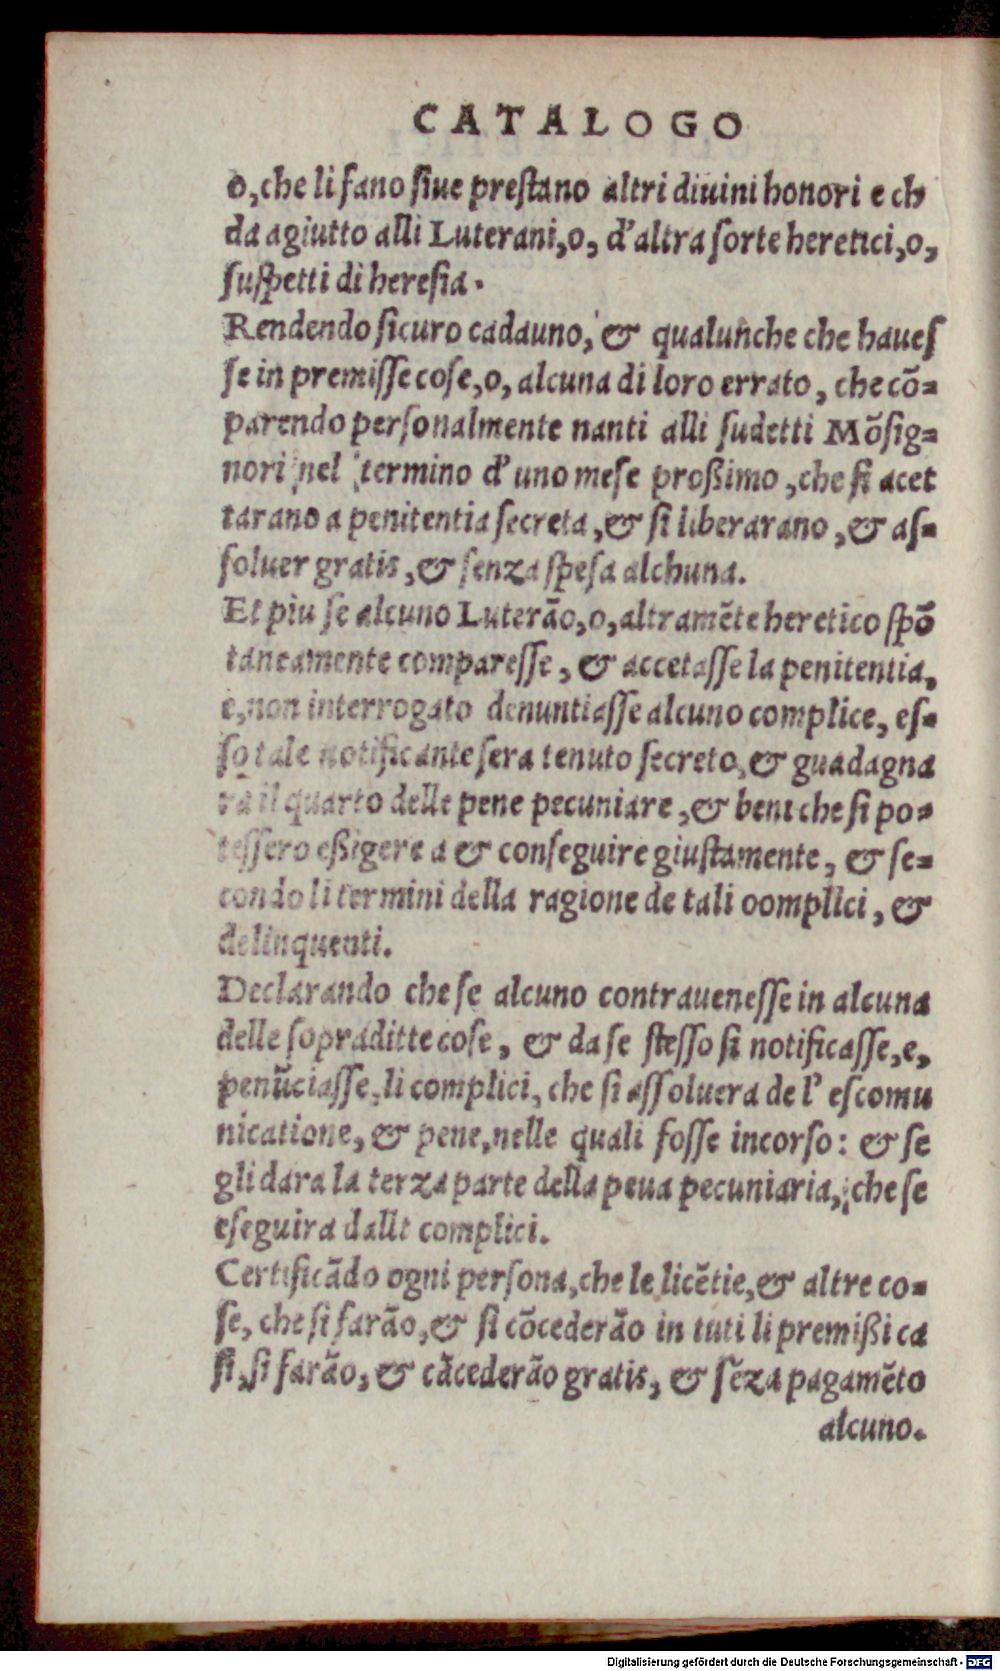 CATALOGO
o, che li fano siue prestano altri diuini honori e ch
da agiutto alli Luterani, o, d'altra sorte heretici, o,
suspetti di heresia.
Rendendo sicuro cadauno, & qualunche che haues
se in premisse cose, o, alcuna di loro errato, che cō-
parendo personalmente nanti alli sudetti Mōsig-
nori nel termino d'uno mese proßimo, che si acet
tarano a penitentia secreta, & si liberarano, & as-
soluer gratis, & senza spesa alchuna.
Et piu se alcuno Luterāo, o, altramēte heretico spō
taneamente comparesse, & accetasse la penitentia,
e, non interrogato denuntiasse alcuno complice, es-
so tale notificante sera tenuto secreto, & guadagna
ra il quarto delle pene pecuniare, & beni che si po-
tessero eßigere a & conseguire giustamente, & se-
condo li termini della ragione de tali oomplici, &
delinquenti.
Declarando che se alcuno contrauenesse in alcuna
delle sopraditte cose, & da se stesso si notificasse, e,
penūciasse, li complici, che si assoluera de l'escomu
nicatione, & pene, nelle quali fosse incorso: & se
gli dara la terza parte della peua pecuniaria, che se
eseguira dalli complici.
Certificādo ogni persona, che le licētie, & altre co-
se, che si farāo, & si cōcederāo in tuti li premißi ca
si, si farāo, & cācederāo gratis, & sēza pagamēto
alcuno.
Digitalisierung gefördert durch die Deutsche Forschungsgemeinschaft - DFG